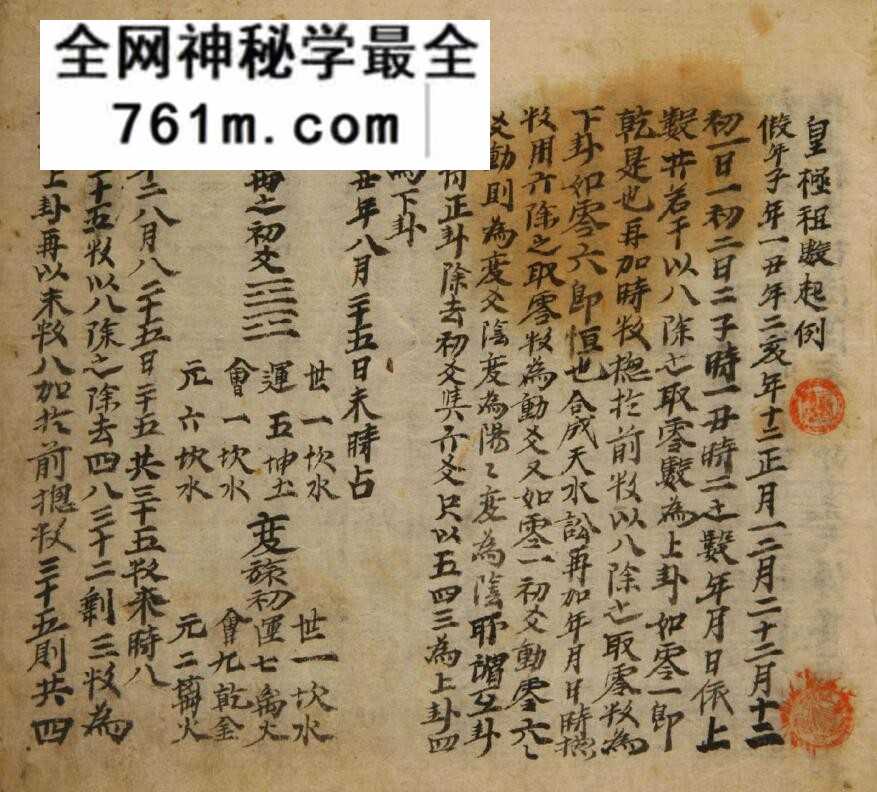 全网神秘学最全
761m.com
皇極祖數起例
假年子年一丑年二亥年十二正月一二月二十二月十二
初一日一初二日二子時一丑時二之數年月日依上
數共若干以八除之取零數為上卦如零一即
乾是也再加時数揔扵前数以八除之取零数為
下卦如零六即恒也合成天水訟再加年月日時揔
数用六除之取零数為動爻又如零一初爻動零六
爻動則為变爻陰变為陽陽变為陰耶謂互卦
正卦除去初爻其六爻只以五四三為上卦四
為下卦
丑年八月二十五日未時占
之初爻
世一坎水
運五坤土
會一坎水
元六坎水
变旅初
世一坎水
運七离火
會九乾金
元二離火
十二八月八二十五日二十五共三十五数未時八
十五数以八除之除去四八三十二剩三数為
上卦再以未数八加扵前揔数三十五則共四